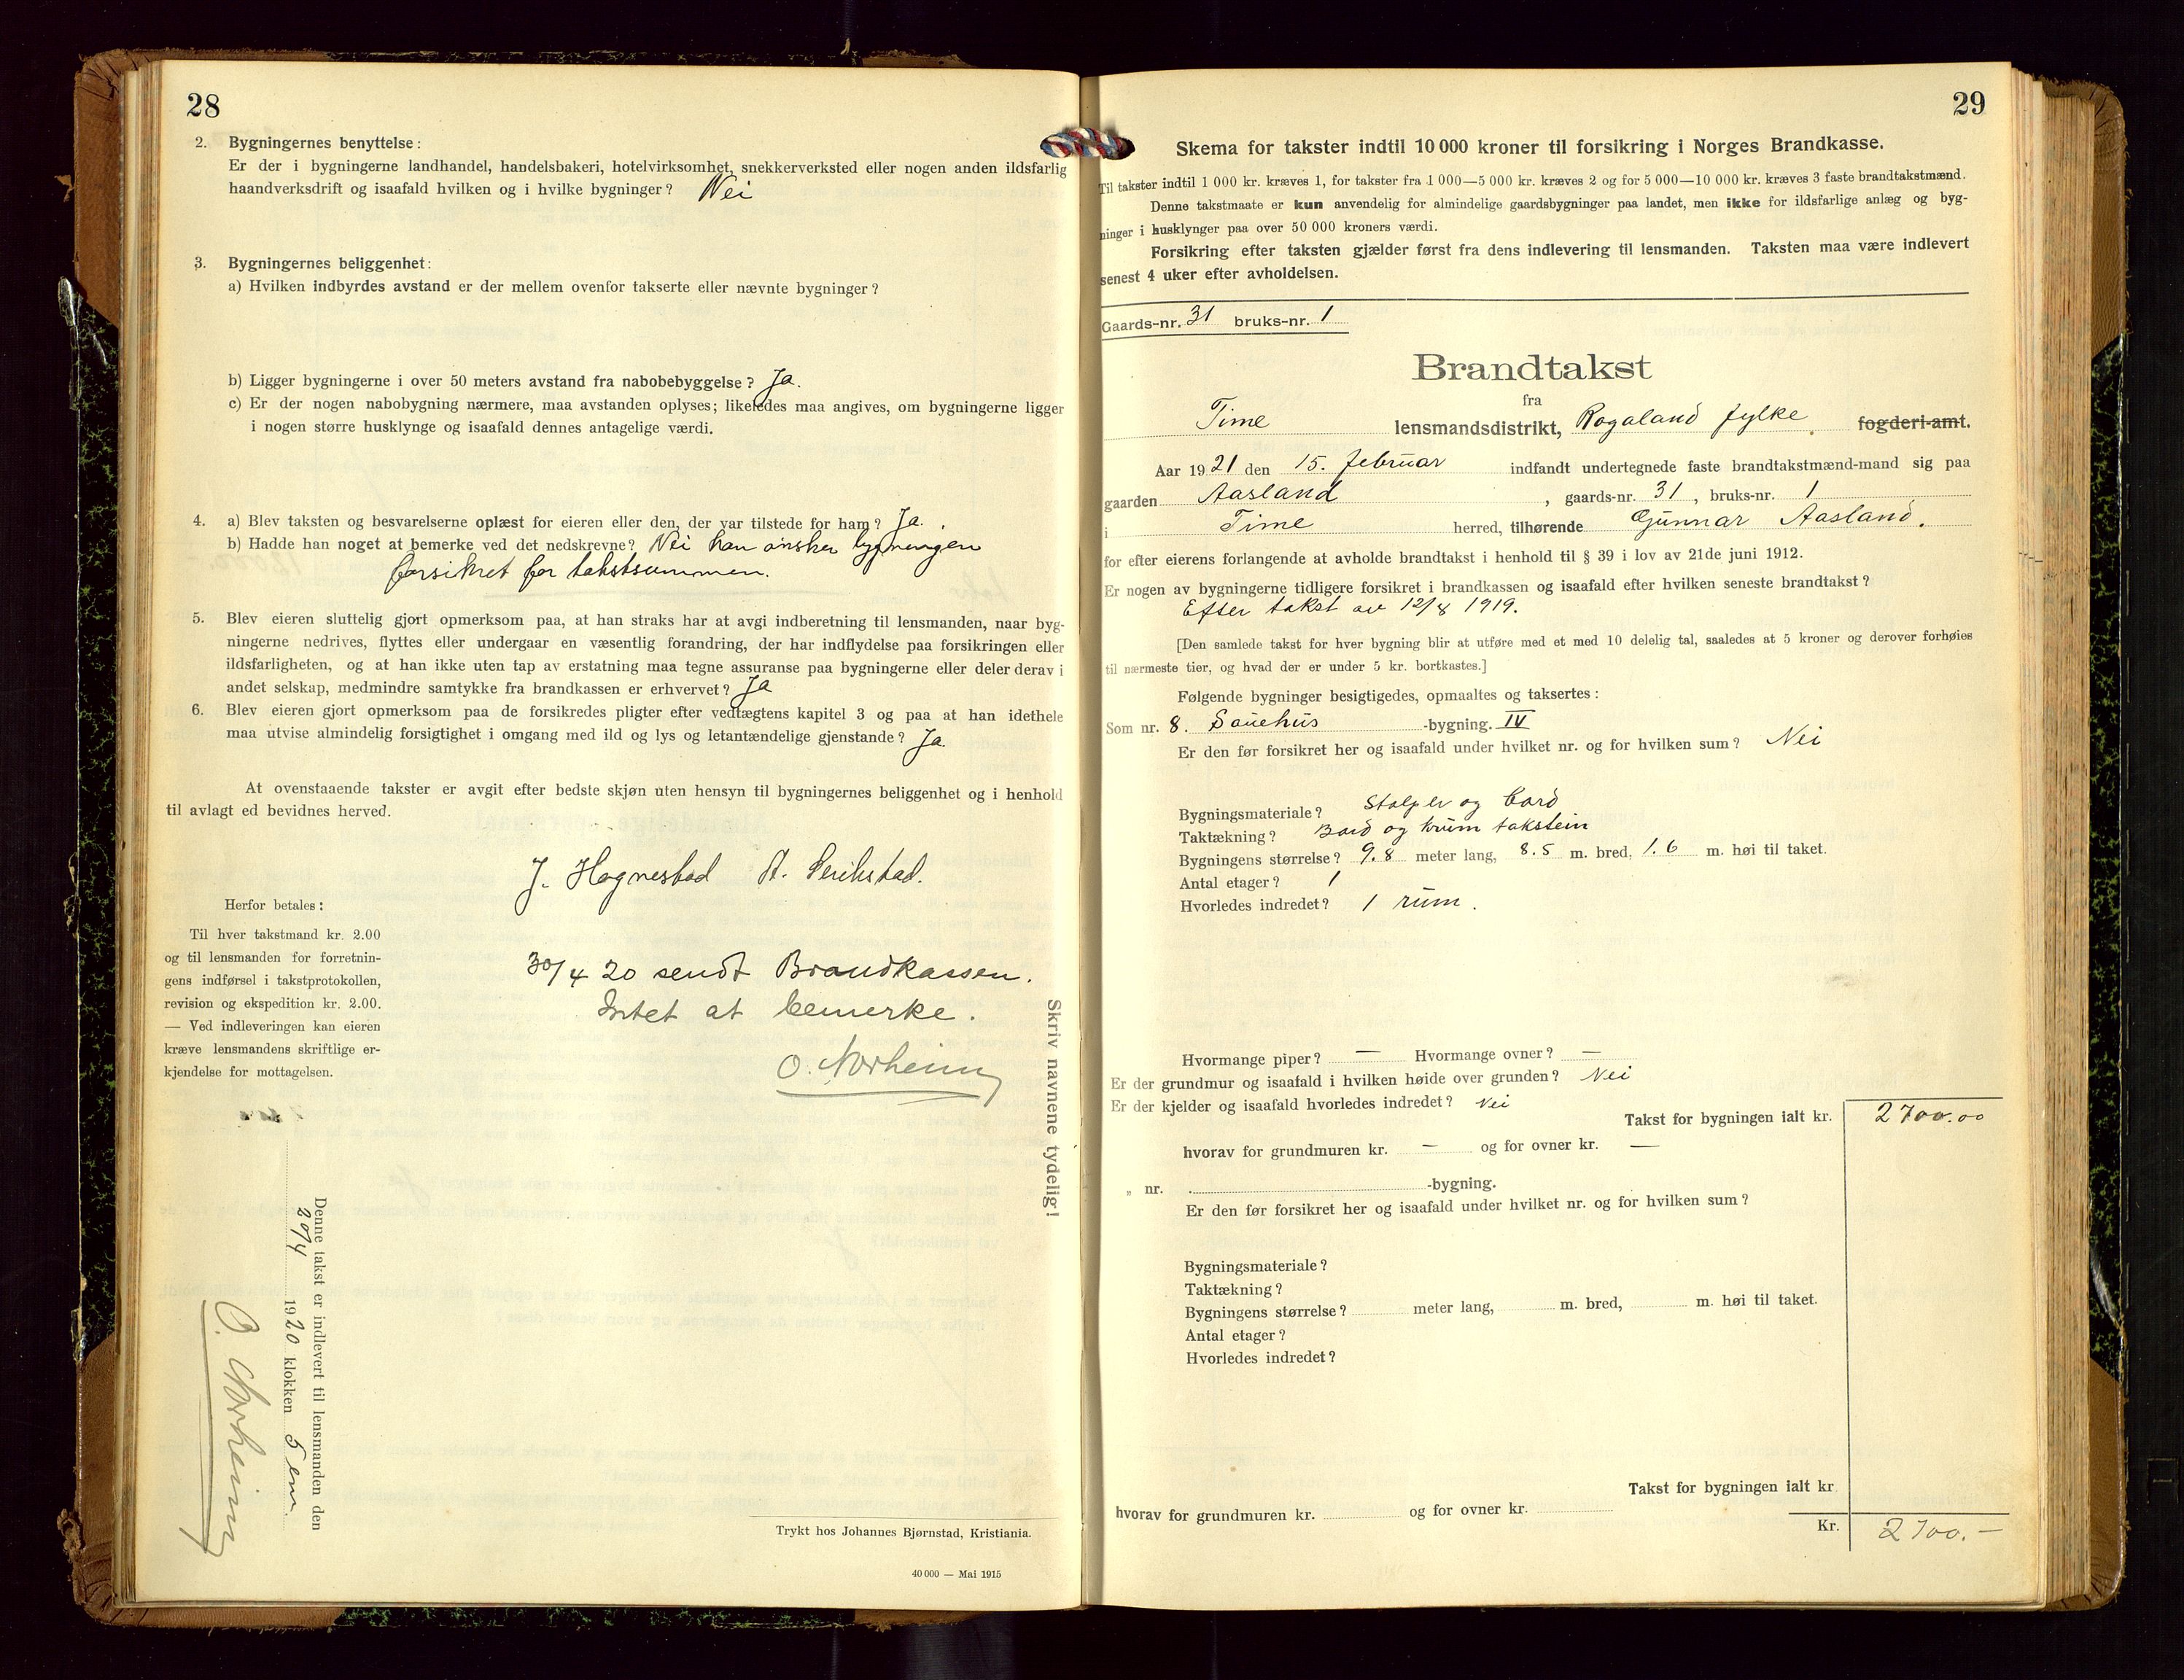 28
2. Bygningernes benyttelse:
Er der i bygningerne landhandel, handelsbakeri, hotelvirksomhet, snekkerverksted eller nogen anden ildsfarlig
haandverksdrift og isaafald hvilken og i hvilke bygninger? Nei
3. Bygningernes beliggenhet:
a) Hvilken indbyrdes avstand er der mellem ovenfor takserte eller nævnte bygninger?
b) Ligger bygningerne i over 50 meters avstand fra nabobebyggelse? Ja.
c) Er der nogen nabobygning nærmere, maa avstanden oplyses; likeledes maa angives, om bygningerne ligger
i nogen større husklynge og isaafald dennes antagelige værdi.
4. a) Blev taksten og besvarelserne oplæst for eieren eller den, der var tilstede for ham? Ja.
b) Hadde han noget at bemerke ved det nedskrevne? Nei han ønsker bygningen
forsikret for takstsummen.
5. Blev eieren sluttelig gjort opmerksom paa, at han straks har at avgi indberetning til lensmanden, naar byg-
ningerne nedrives, flyttes eller undergaar en væsentlig forandring, der har indflydelse paa forsikringen eller
ildsfarligheten, og at han ikke uten tap av erstatning maa tegne assuranse paa bygningerne eller deler derav i
andet selskap, medmindre samtykke fra brandkassen er erhvervet? Ja
6. Blev eieren gjort opmerksom paa de forsikredes pligter efter vedtægtens kapitel 3 og paa at han idethele
maa utvise almindelig forsigtighet i omgang med ild og lys og letantændelige gjenstande? Ja.
At ovenstaaende takster er avgit efter bedste skjøn uten hensyn til bygningernes beliggenhet og i henhold
til avlagt ed bevidnes herved.
J. Hognestad A.
Herfor betales:
Til hver takstmand kr. 2.00
og til lensmanden for forretnin-
gens indførsel i takstprotokollen,
revision og ekspedition kr. 2.00.
— Ved indleveringen kan eieren
kræve lensmandens skriftlige er-
kjendelse for mottagelsen.
30/4 20 sendt Brandkassen.
Intet at bemerke.
O. Norheim
Skriv navnene tydelig!
Denne takst er indlevert til lensmanden den
20/4 1920 klokken 5 em.
O. Norheim
Trykt hos Johannes Bjørnstad, Kristiania.
40 000 — Mai 1915
29
Skema for takster indtil 10 000 kroner til forsikring i Norges Brandkasse.
Til takster indtil 1 000 kr. kræves 1, for takster fra 1 000—5 000 kr. kræves 2 og for 5 000—10 000 kr. kræves 3 faste brandtakstmænd.
Denne takstmaate er kun anvendelig for almindelige gaardsbygninger paa landet, men ikke for ildsfarlige anlæg og byg-
ninger i husklynger paa over 50 000 kroners værdi.
Forsikring efter taksten gjælder først fra dens indlevering til lensmanden. Taksten maa være indlevert
senest 4 uker efter avholdelsen.
Gaards-nr. 31 bruks-nr. 1
Brandtakst
fra
Time lensmandsdistrikt, Rogaland fylke fogderi-amt.
Aar 1921 den 15. februar indfandt undertegnede faste brandtakstmænd-mand sig paa
gaarden Aasland, gaards-nr. 31, bruks-nr. 1
i Time herred, tilhørende Gunnar Aasland.
for efter eierens forlangende at avholde brandtakst i henhold til § 39 i lov av 21de juni 1912.
Er nogen av bygningerne tidligere forsikret i brandkassen og isaafald efter hvilken seneste brandtakst?
Efter takst av 12/8 1919.
[Den samlede takst for hver bygning blir at utføre med et med 10 delelig tal, saaledes at 5 kroner og derover forhøies
til nærmeste tier, og hvad der er under 5 kr. bortkastes.]
Følgende bygninger besigtigedes, opmaaltes og taksertes:
Som nr. 8. Sauehus -bygning. IV
Er den før forsikret her og isaafald under hvilket nr. og for hvilken sum? Nei
Bygningsmateriale? Stolper og bord
Taktækning? Bord og krum takstein
Bygningens størrelse? 9.8 meter lang, 8.5 m. bred, 1.6 m. høi til taket.
Antal etager? 1
Hvorledes indredet? 1 rum.
Hvormange piper? — Hvormange ovner? —
Er der grundmur og isaafald i hvilken høide over grunden? Nei
Er der kjelder og isaafald hvorledes indredet? Nei
Takst for bygningen ialt kr. 2700.00
hvorav for grundmuren kr. — og for ovner kr. —
„ nr. -bygning.
Er den før forsikret her og isaafald under hvilket nr. og for hvilken sum?
Bygningsmateriale?
Taktækning?
Bygningens størrelse? meter lang, m. bred, m. høi til taket.
Antal etager?
Hvorledes indredet?
Takst for bygningen ialt kr
hvorav for grundmuren kr. og for ovner kr.
Kr. 2700.—